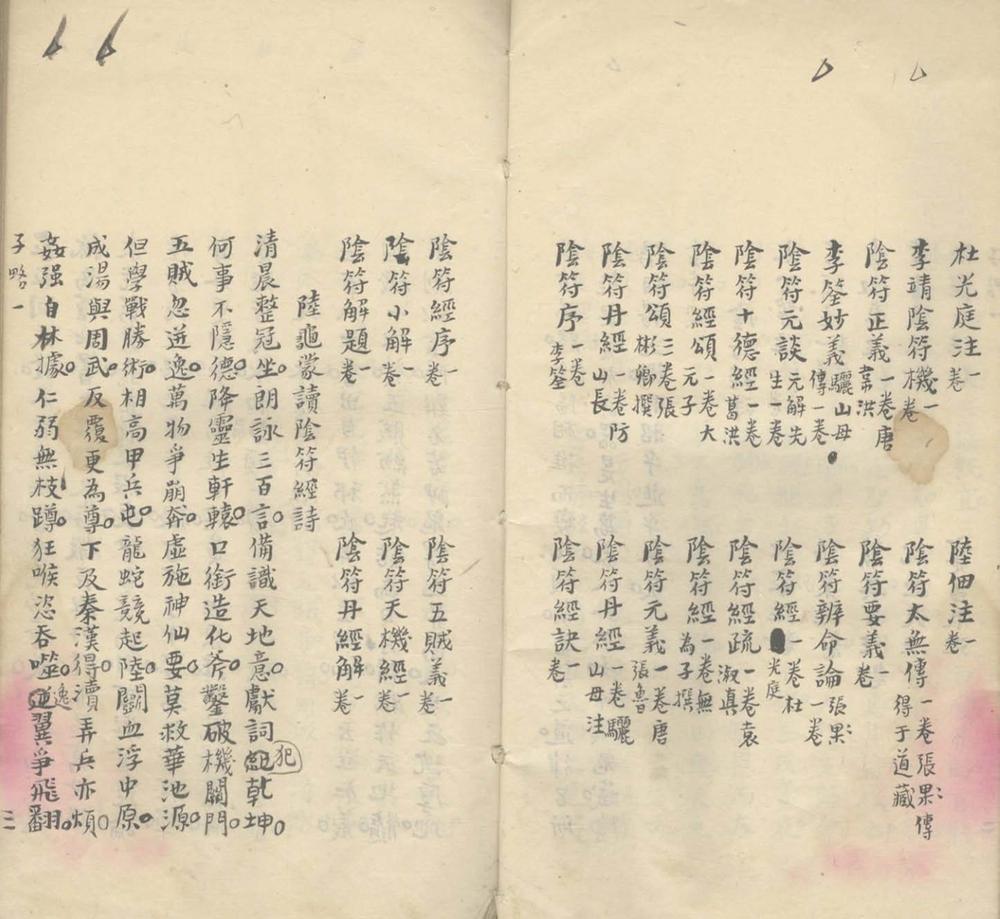 杜光庭注一卷
陸佃注一卷
李靖陰符機一卷
陰符太無傳一卷張果傳得于道藏
陰符正義一卷唐韋洪
陰符要義一卷
李筌妙義驪山母傳一卷
陰符辨命論張果一卷
陰符元談元解先生一卷
陰符經一卷杜光庭
陰符十德經一卷葛洪
陰符經疏一卷袁淑真
陰符經頌一卷大元子
陰符經一卷無為子撰
陰符頌三卷張彬卿撰
陰符元義一卷唐張魯
陰符丹經一卷防山長
陰符丹經一卷驪山母注
陰符序一卷李筌
陰符經訣一卷
陰符經序一卷
陰符五賊義一卷
陰符小解一卷
陰符天機經一卷
陰符解題一卷
陰符丹經解一卷
陸龜蒙讀陰符經詩
清晨整冠坐朗詠三百言備識天地意獻詞犯乾坤
何事不隱德降靈生軒轅口銜造化斧鑿破機關門
五賊忽迸逸萬物爭崩奔虛施神仙要莫救華池源
但學戰勝術相高甲兵屯龍蛇競起陸鬬血浮中原
成湯與周武反覆更為尊下及秦漢得瀆弄兵亦煩
姦强自林據仁弱無枝蹲狂喉恣吞噬逆翼爭飛翻
逸
子略一
三